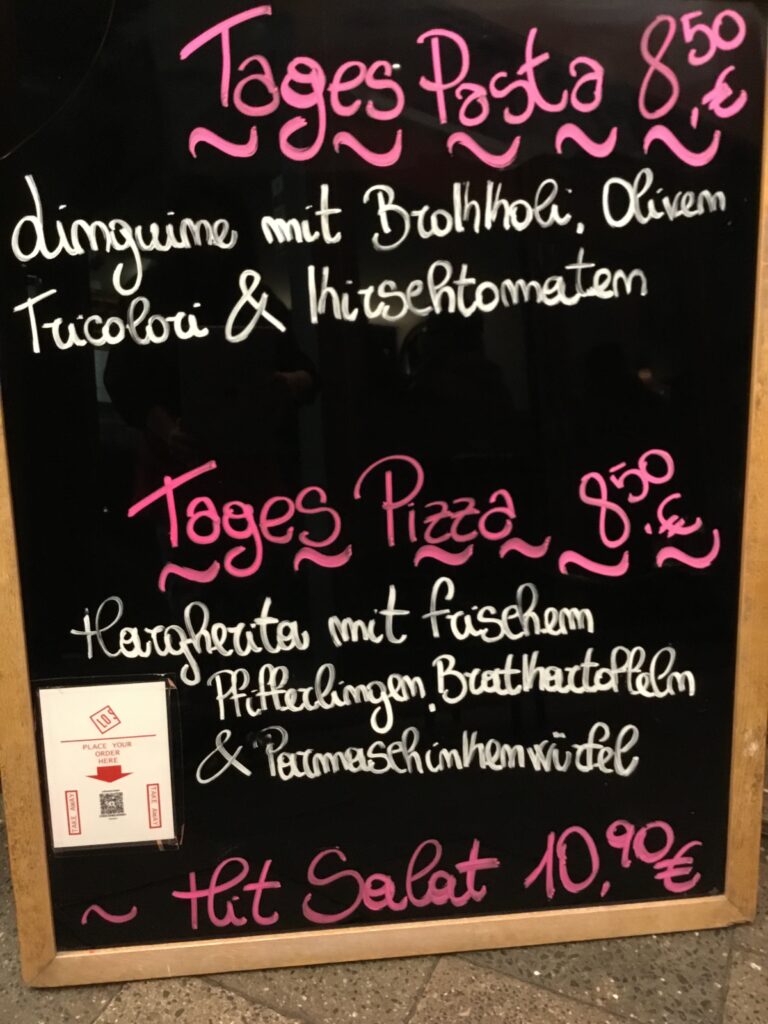 Tages Pasta 8,50 €
Linguine mit Brokkoli, Oliven
Tricolori & Kirschtomaten
Tages Pizza 8,50 €
Margherita mit frischem
Pfifferlingen, Bratkartoffeln
& Parmaschinkenwürfel
LOS
PLACE YOUR
ORDER
HERE
TAKE AWAY
TAKE AWAY
~ Hit Salat 10,90 €